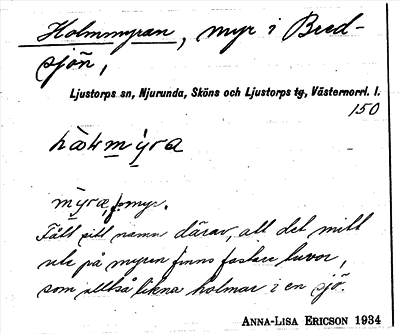 Holmmyran, myr i Bred-
sjön,
Ljustorps sn, Njurunda, Sköns och Ljustorps tg, Västernorrl. l.
150
myra, f. myr.
Fått sitt namn därav, att det mitt
ute på myren finns fastare tuvor,
som alltså likna holmar i en sjö.
ANNA-LISA ERICSON 1934